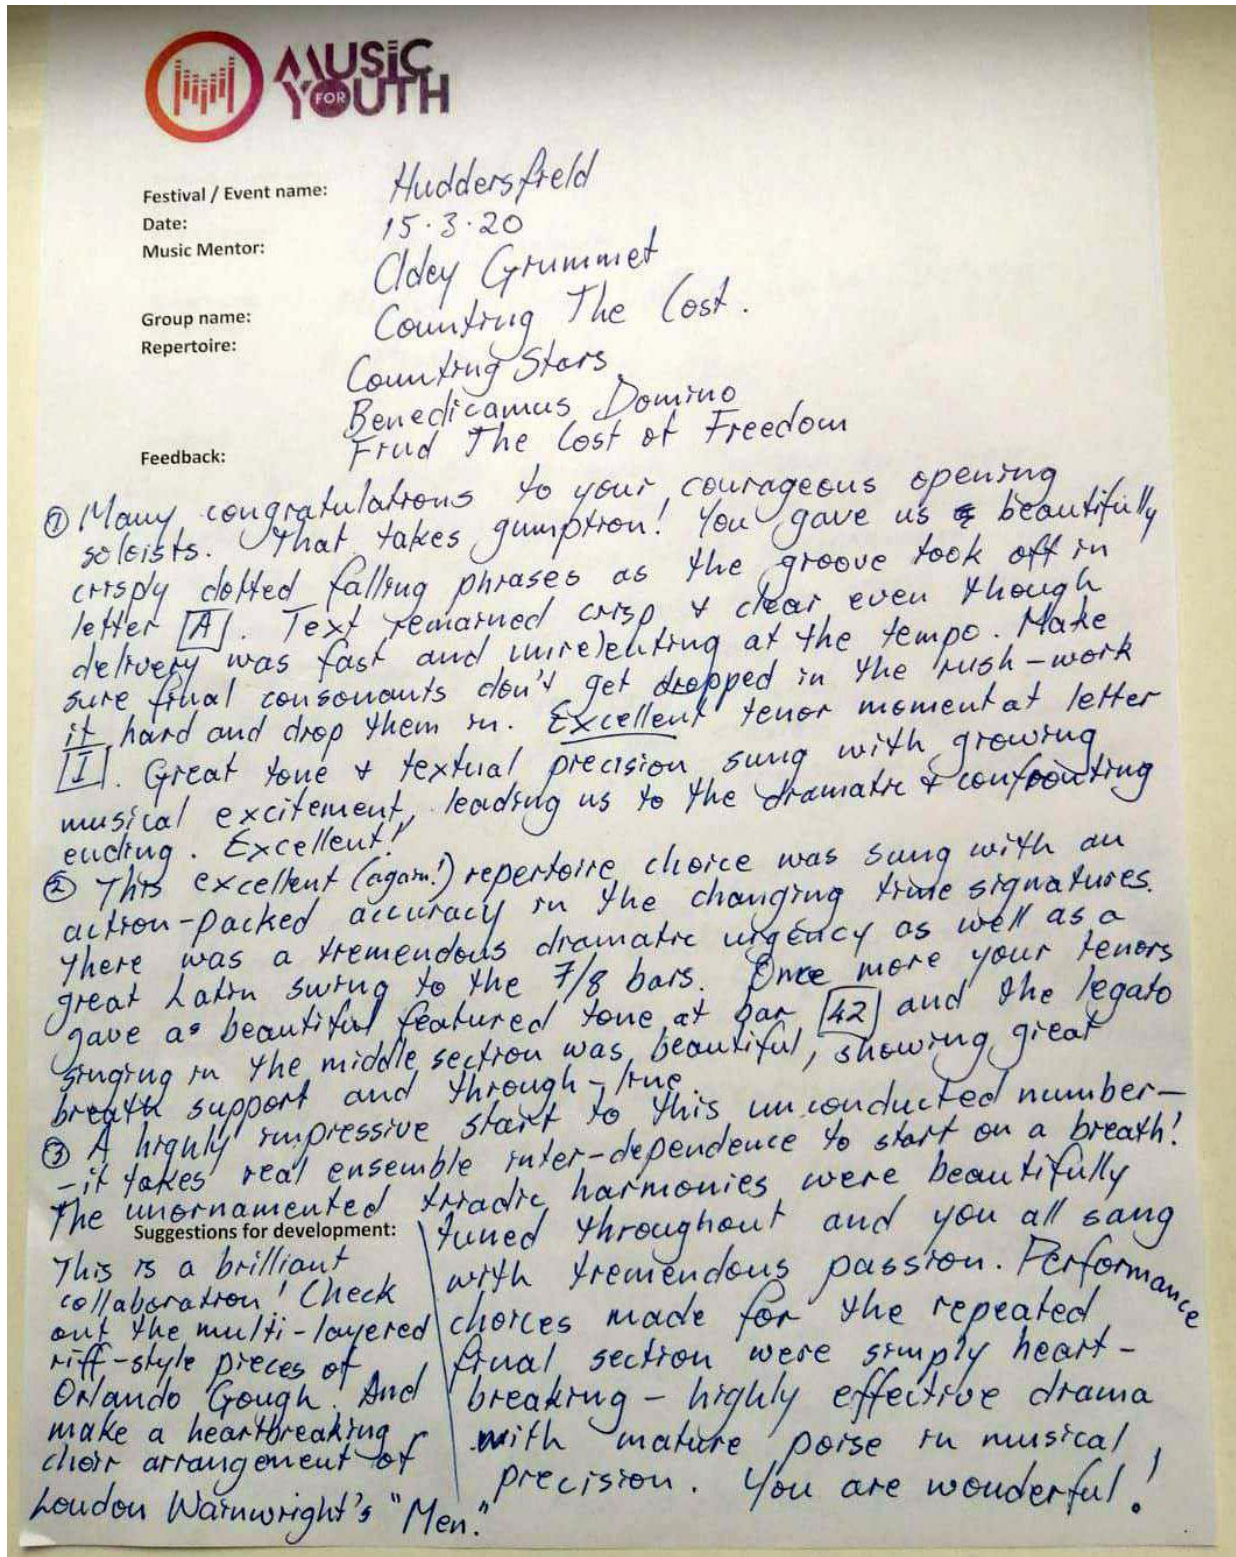 MUSIC
FOR
YOUTH
Festival / Event name: Huddersfield
Date: 15.3.20
Music Mentor: Adey Grummet
Group name: Counting The Cost.
Repertoire:
Counting Stars
Benedicamus Domino
Find The Cost of Freedom
Feedback:
① Many congratulations to your courageous opening
soloists. That takes gumption! You gave us beautifully
crisply dotted falling phrases as the groove took off in
letter A. Text remained crisp & clear even though
delivery was fast and unrelenting at the tempo. Make
sure final consonants don't get dropped in the rush – work
it hard and drop them in. Excellent tenor moment at letter
I. Great tone & textual precision sung with growing
musical excitement, leading us to the dramatic & confronting
ending. Excellent!
② This excellent (again!) repertoire choice was sung with an
action-packed accuracy in the changing time signatures.
There was a tremendous dramatic urgency as well as a
great Latin swing to the 7/8 bars. Once more your tenors
gave a beautiful featured tone at bar 42 and the legato
singing in the middle section was beautiful, showing great
breath support and through-line.
③ A highly impressive start to this unconducted number –
– it takes real ensemble inter-dependence to start on a breath!
The unornamented triadic harmonies were beautifully
tuned throughout and you all sang
with tremendous passion. Performance
choices made for the repeated
final section were simply heart-
breaking – highly effective drama
with mature poise in musical
precision. You are wonderful!
Suggestions for development:
This is a brilliant
collaboration! Check
out the multi-layered
riff-style pieces of
Orlando Gough. And
make a heartbreaking
choir arrangement of
Loudon Wainwright's "Men."